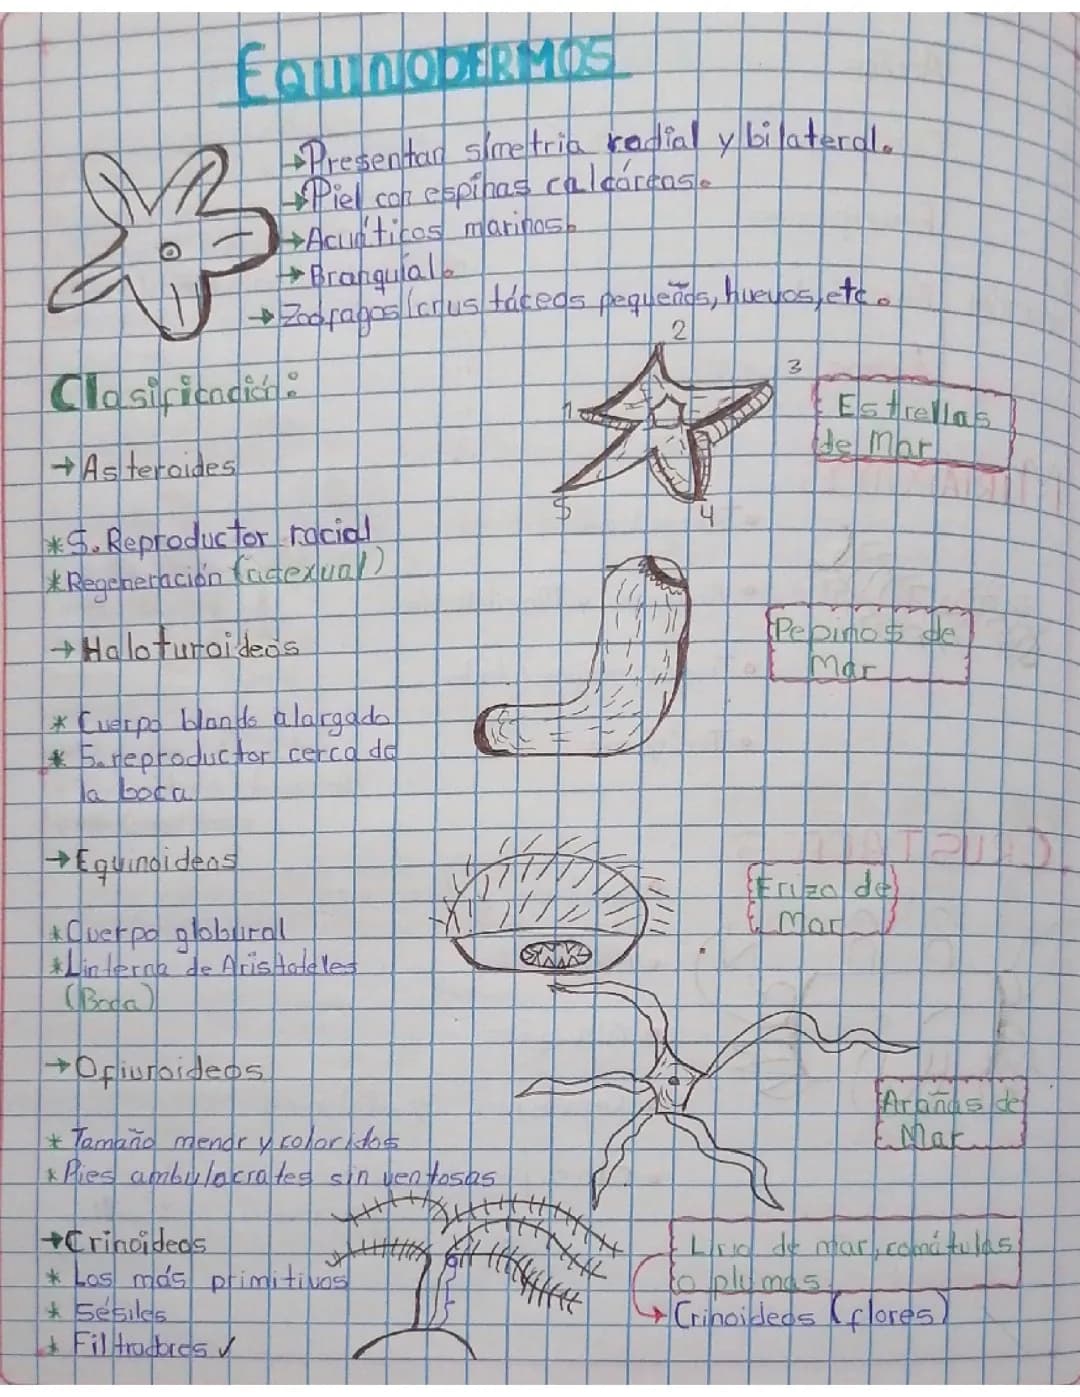 EQUINODERMOS
→Presentan simetria radial y bilateral.
→Piel con espinas calcáreas.
→Acuáticos marinos.
→Branquial.
→Zoofagos (crustáceos pequeños, huevos, etc.
Clasificación:
1 2 3 4 5
Estrellas
de Mar
→Asteroides
*S. Reproductor racial
*Regeneración (asexual)
→Haloturoideos
Pepinos de
Mar
* Cuerpo blando alargado
* S. reproductor cerca de
la boca
→Equinoideos
Erizo de
Mar
*Cuerpo globural
*Linterna de Aristoteles
(Boca)
→Ofiuroideos
Arañas de
Mar
* Tamaño menor y coloridos
*Pies ambulacrates sin ventosas
→Crinoideos
Lirio de mar, comátulas
o plumas
* Los más primitivos
* Sésiles
→Crinoideos (flores)
* Filtradores ✓